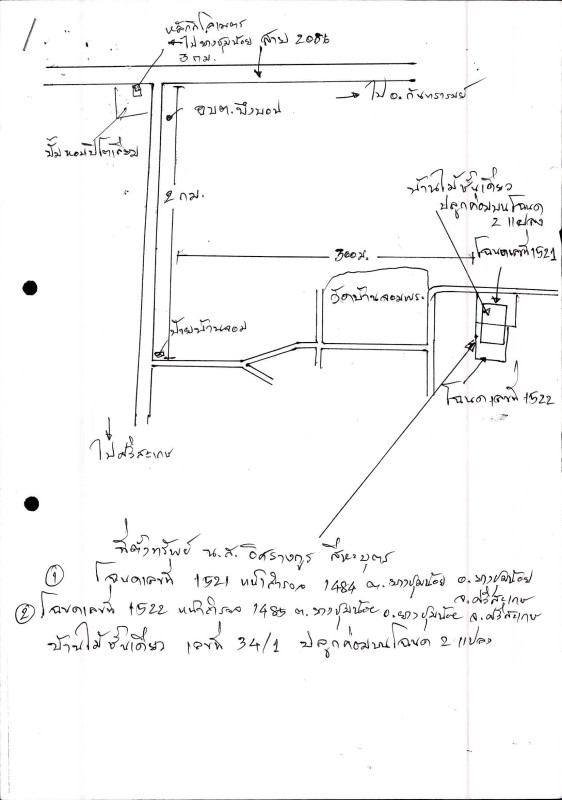 หลักกิโลเมตร
ไปยางชุมน้อย สาย 2086
3 กม.
อบต.บึงบอน
ไป อ. กันทรารมย์
ปั๊มหอมปิโตเลียม
2 กม.
บ้านไม้ชั้นเดียว
ปลูกคร่อมบนโฉนด
2 แปลง
300 ม.
โฉนดเลขที่ 1521
วัดบ้านจอมพระ
ป้ายบ้านจอม
โฉนดเลขที่ 1522
ไปศรีสะเกษ
ที่ตั้งทรัพย์ น.ส.
① โฉนดเลขที่ 1521 หน้าสำรวจ 1484 ต.ยางชุมน้อย อ.ยางชุมน้อย
จ.ศรีสะเกษ
② โฉนดเลขที่ 1522 หน้าสำรวจ 1485 ต.ยางชุมน้อย อ.ยางชุมน้อย จ.ศรีสะเกษ
บ้านไม้ชั้นเดียว เลขที่ 34/1 ปลูกคร่อมบนโฉนด 2 แปลง